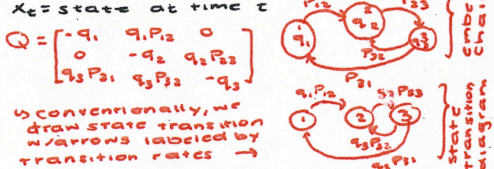 Xt = state at time t
Q = [ -q1 q1P12 0
0 -q2 q2P23
q3P31 q3P32 -q3 ]
↳ conventionally, we
draw state transition
w/arrows labeled by
transition rates →
P12 P23
1 q1
2 q2
3 q3
P32
P31
q1P12 q2P23
1 2 3
q3P32
q3P31
state
transition
diagram